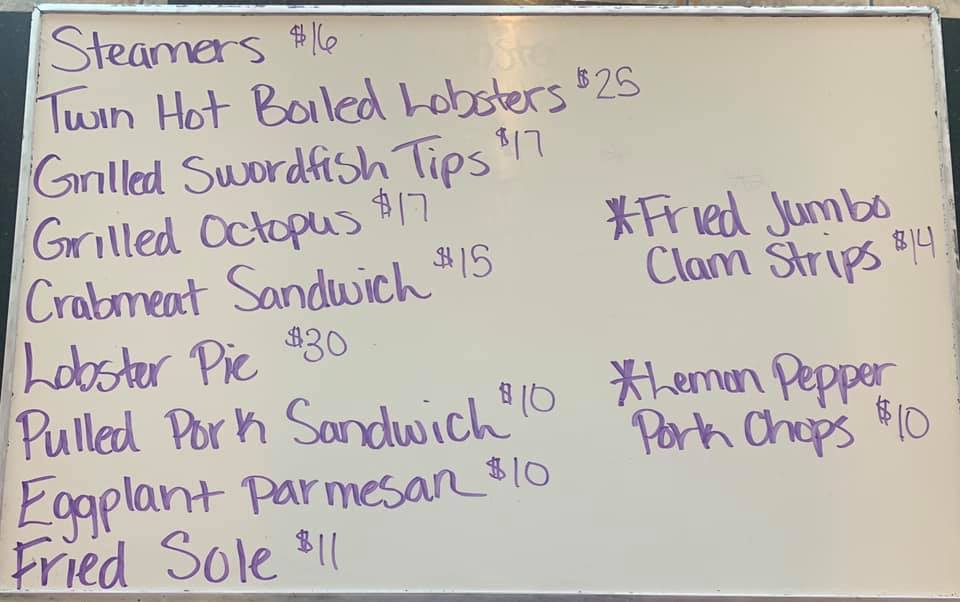 Steamers $16
Twin Hot Boiled Lobsters $25
Grilled Swordfish Tips $17
Grilled Octopus $17
Crabmeat Sandwich $15
Lobster Pie $30
Pulled Pork Sandwich $10
Eggplant Parmesan $10
Fried Sole $11
*Fried Jumbo
Clam Strips $14
*Lemon Pepper
Pork Chops $10